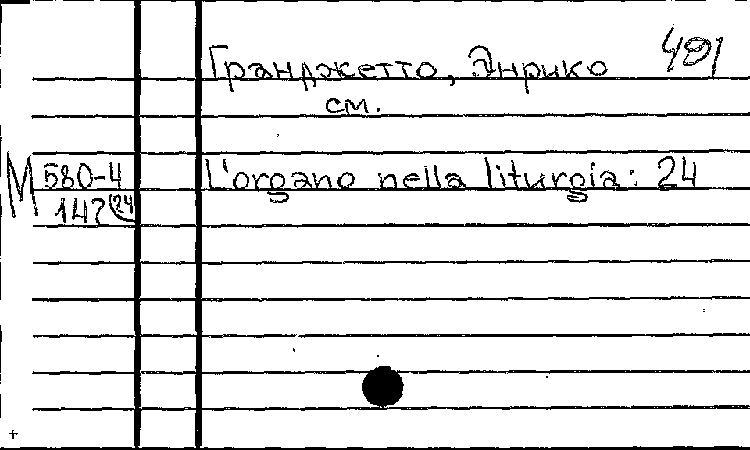 491
Гранджетто, Энрико
см.
M 580-4 L'organo nella liturgia: 24
147 (24